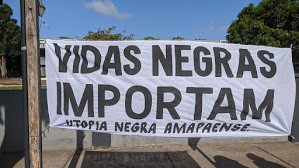 VIDAS NEGRAS
IMPORTAM
UTOPIA NEGRA AMAPAENSE.